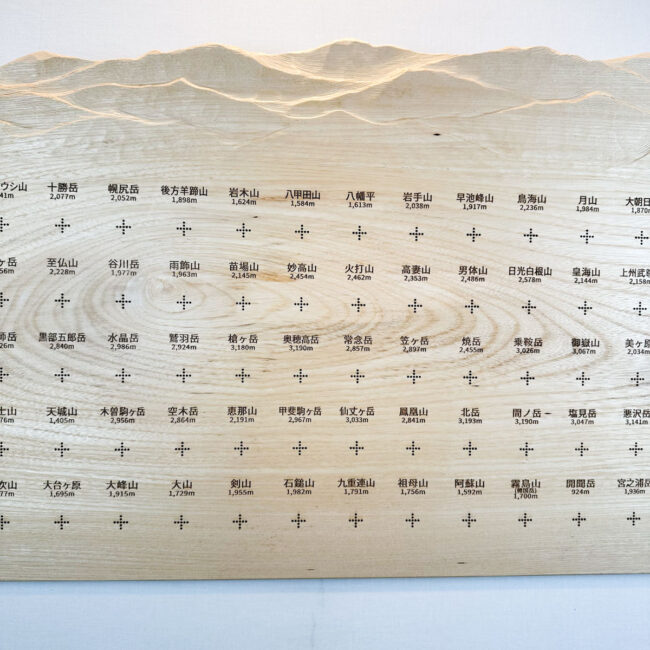 ウシ山 十勝岳 幌尻岳 後方羊蹄山 岩木山 八甲田山 八幡平 岩手山 早池峰山 鳥海山 月山 大朝日
41m 2,077m 2,052m 1,898m 1,624m 1,584m 1,613m 2,038m 1,917m 2,236m 1,984m 1,870m
ヶ岳 至仏山 谷川岳 雨飾山 苗場山 妙高山 火打山 高妻山 男体山 日光白根山 皇海山 上州武尊
56m 2,228m 1,977m 1,963m 2,145m 2,454m 2,462m 2,353m 2,486m 2,578m 2,144m 2,158m
師岳 黒部五郎岳 水晶岳 鷲羽岳 槍ヶ岳 奥穂高岳 常念岳 笠ヶ岳 焼岳 乗鞍岳 御嶽山 美ヶ原
26m 2,840m 2,986m 2,924m 3,180m 3,190m 2,857m 2,897m 2,455m 3,026m 3,067m 2,034m
士山 天城山 木曽駒ヶ岳 空木岳 恵那山 甲斐駒ヶ岳 仙丈ヶ岳 鳳凰山 北岳 間ノ岳 塩見岳 悪沢岳
76m 1,405m 2,956m 2,864m 2,191m 2,967m 3,033m 2,841m 3,193m 3,190m 3,047m 3,141m
吹山 大台ヶ原 大峰山 大山 剣山 石鎚山 九重連山 祖母山 阿蘇山 霧島山 開聞岳 宮之浦岳
77m 1,695m 1,915m 1,729m 1,955m 1,982m 1,791m 1,756m 1,592m (韓国岳) 924m 1,936m
1,700m